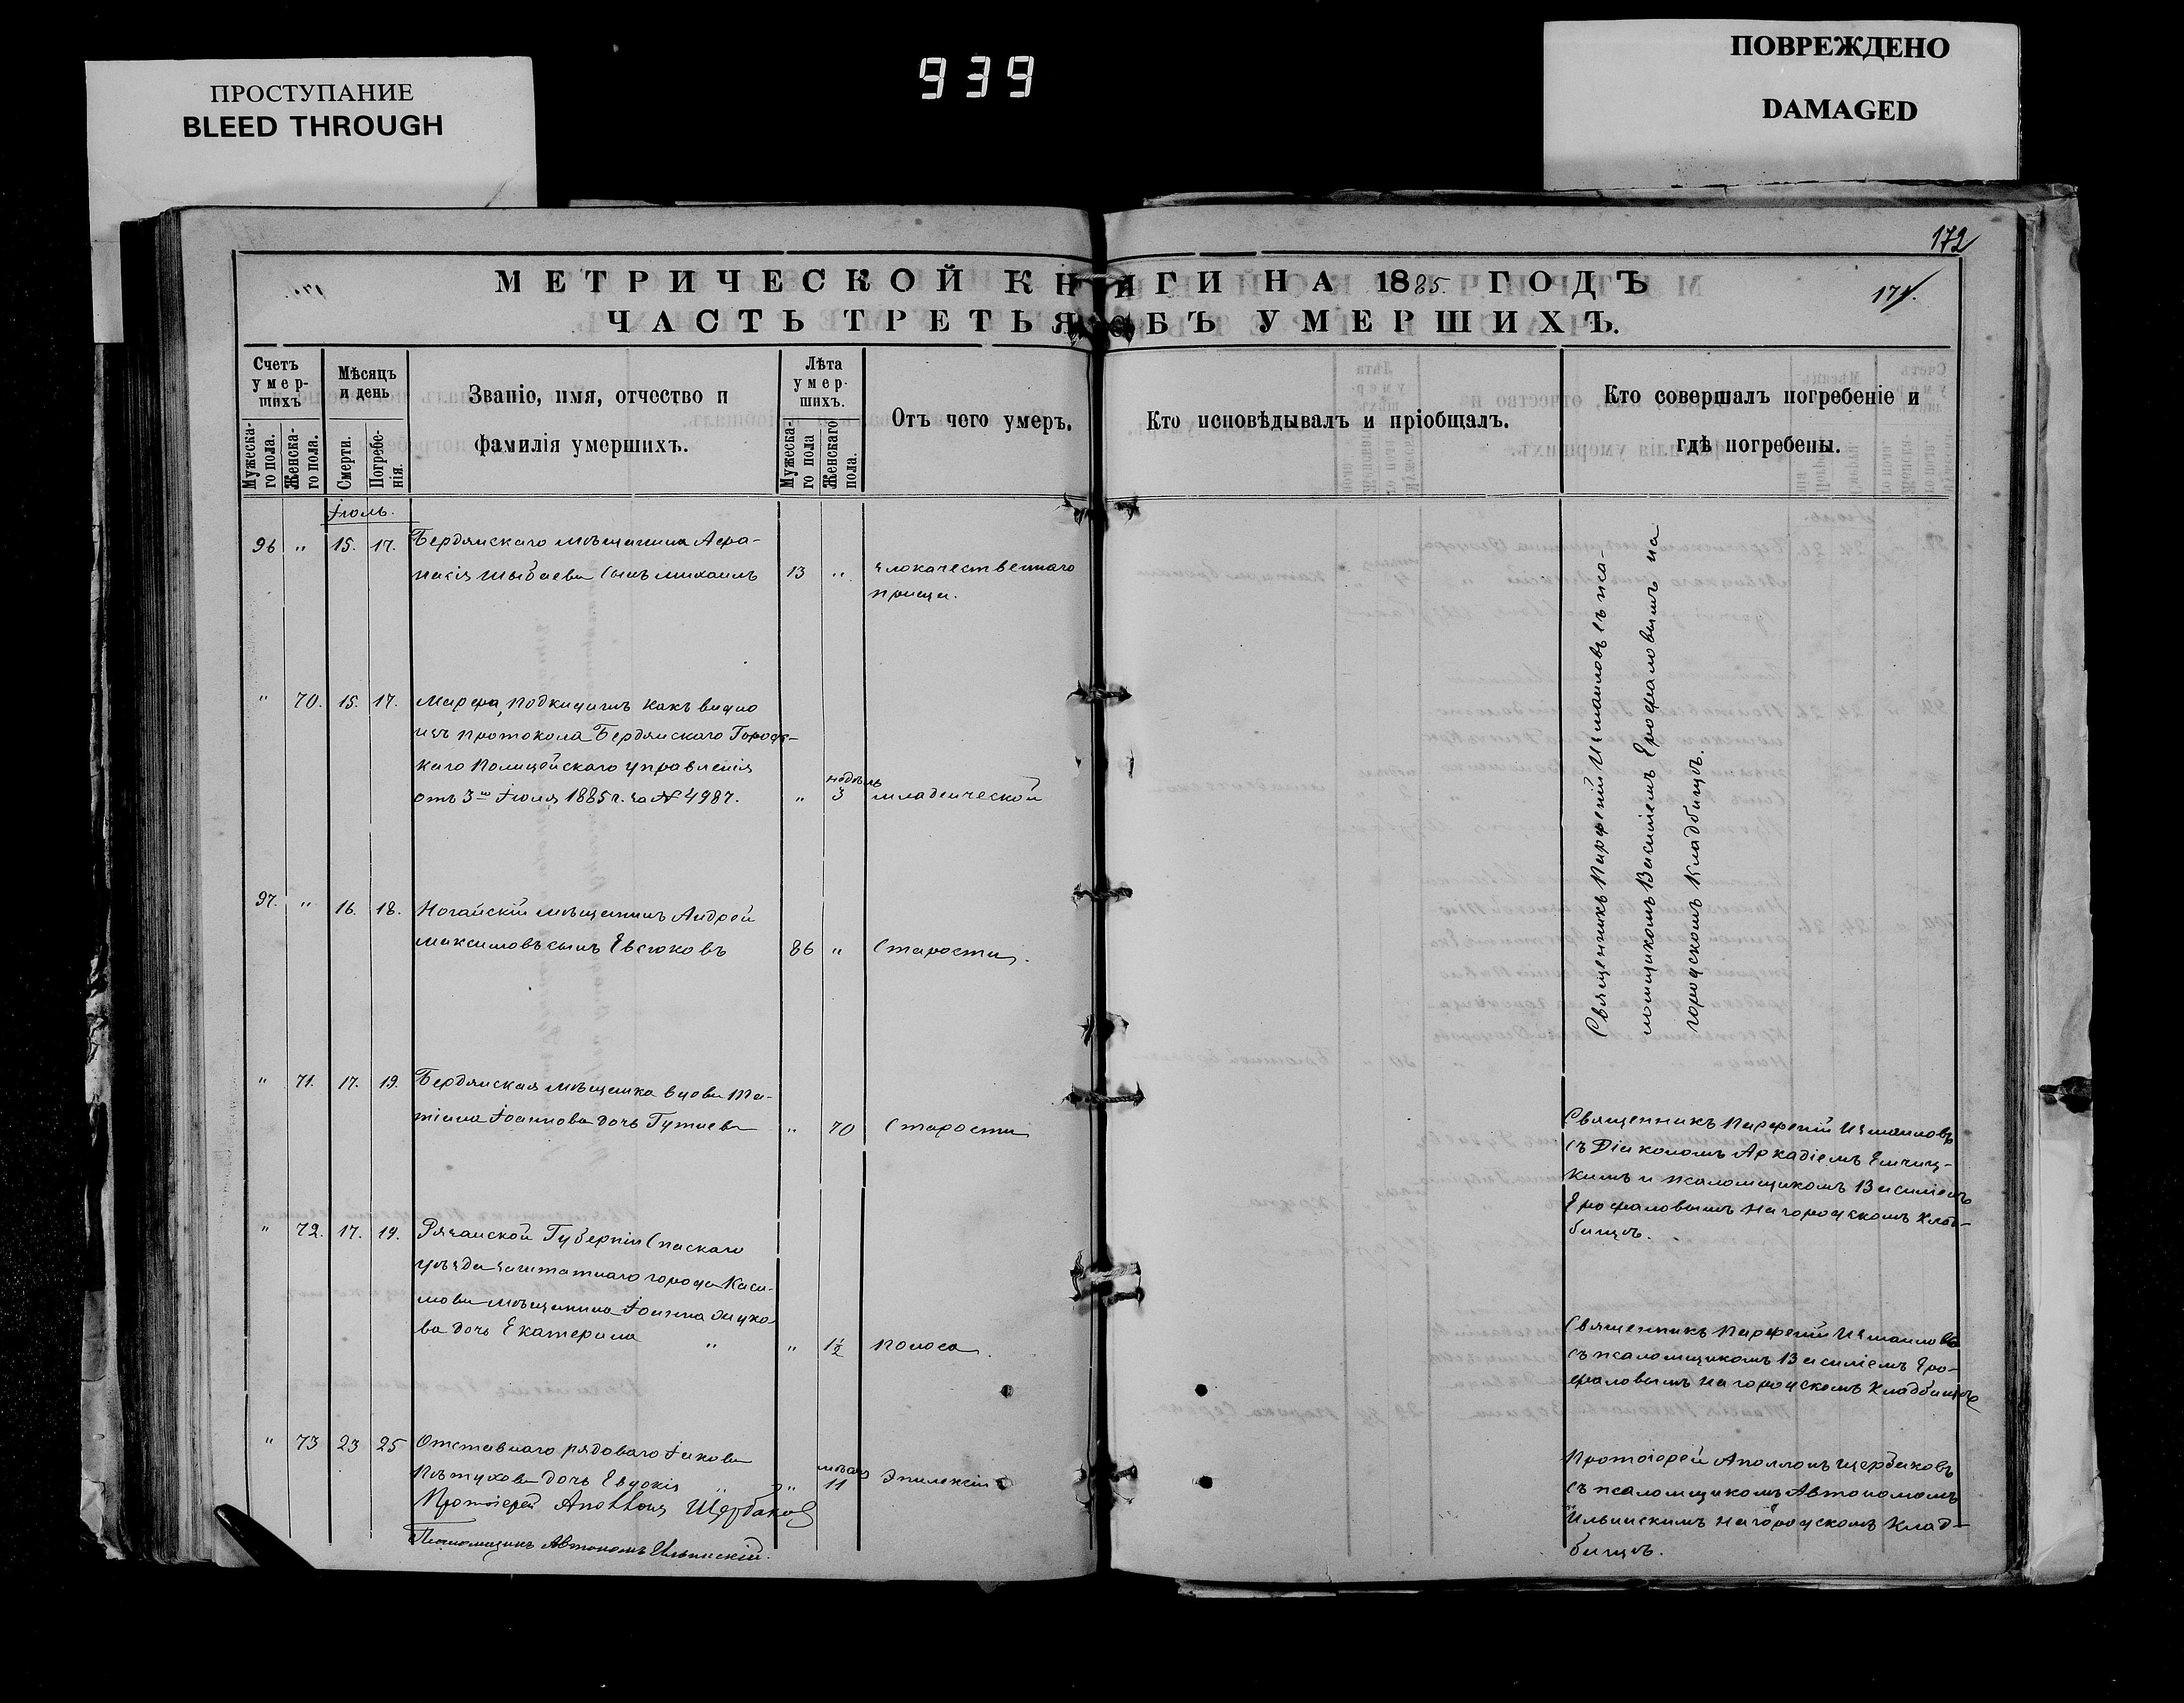 ПРОСТУПАНИЕ
BLEED THROUGH
939
ПОВРЕЖДЕНО
DAMAGED
172
171.
МЕТРИЧЕСКОЙ КНИГИ НА 1885 ГОДЪ
ЧАСТЬ ТРЕТЬЯ ОБЪ УМЕРШИХЪ.
Счетъ умер-
шихъ
Мужеска-
го пола.
Женска-
го пола.
Мѣсяцъ
и день
Смерти.
Погребе-
нія.
Званіе, имя, отчество и
фамилія умершихъ.
Лѣта
умер-
шихъ.
Мужеска-
го пола
Женскаго
пола.
Отъ чего умеръ.
Кто исповѣдывалъ и пріобщалъ.
Кто совершалъ погребеніе и
гдѣ погребены.
Іюль.
96 " 15. 17. Бердянскаго мѣщанина Афа-
насія сынъ Михаилъ 13 " злокачественнаго
прыща.
Священникъ Парфеній Измаиловъ съ пса-
ломщикомъ Василіемъ Ерофаловымъ на
городскомъ кладбищѣ.
" 70. 15. 17. Марфа, подкидышъ какъ видно
изъ протокола Бердянскаго Городс-
каго Полицейскаго управленія
отъ 3го Іюля 1885 г. за № 4987. " недѣль 3 младенческой
97. " 16. 18. Ногайскій мѣщанинъ Андрей
Максимовъ сынъ Евсюковъ 86 " Старости.
" 71. 17. 19. Бердянская мѣщанка вдова Та-
тіана Іоаннова дочь Гутаева " 70 Старости
Священникъ Парфеній Измаиловъ
съ Діакономъ Аркадіемъ
и псаломщикомъ Василіемъ
Ерофаловымъ на городскомъ клад-
бищѣ.
" 72. 17. 19. Рязанской Губерніи Спаскаго
уѣзда заштатнаго города Каси-
мова мѣщанина Іоанна
дочь Екатерина " " 1½ поноса.
Священникъ Парфеній Измаиловъ
съ псаломщикомъ Василіемъ Еро-
фаловымъ на городскомъ кладбищѣ
" 73 23 25 Отставнаго рядоваго Іакова
Пѣтухова дочь Евдокія " " мѣсяц 11 Эпилексіи
Протоіерей Аполлонъ Щербаковъ
съ псаломщикомъ Автономомъ
Ильинскимъ на городскомъ клад-
бищѣ.
Протоіерей Аполлонъ Щербаковъ
Псаломщикъ Автономъ Ильинскій.